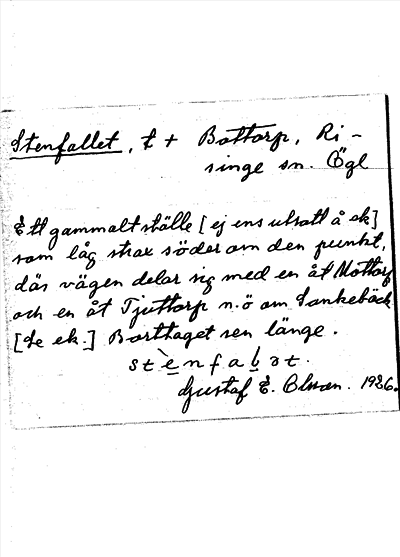 Stenfallet, t + Bottorp, Ri-
singe sn. Ögl
Ett gammalt ställe [ej ens utsatt å ek]
som låg strax söder om den punkt,
där vägen delar sig med en åt Mottorp
och en åt Tjuttorp n.ö om Sankebäck
[se ek.] Borttaget sen länge.
stènfalət.
Gustaf E. Olsson. 1926.